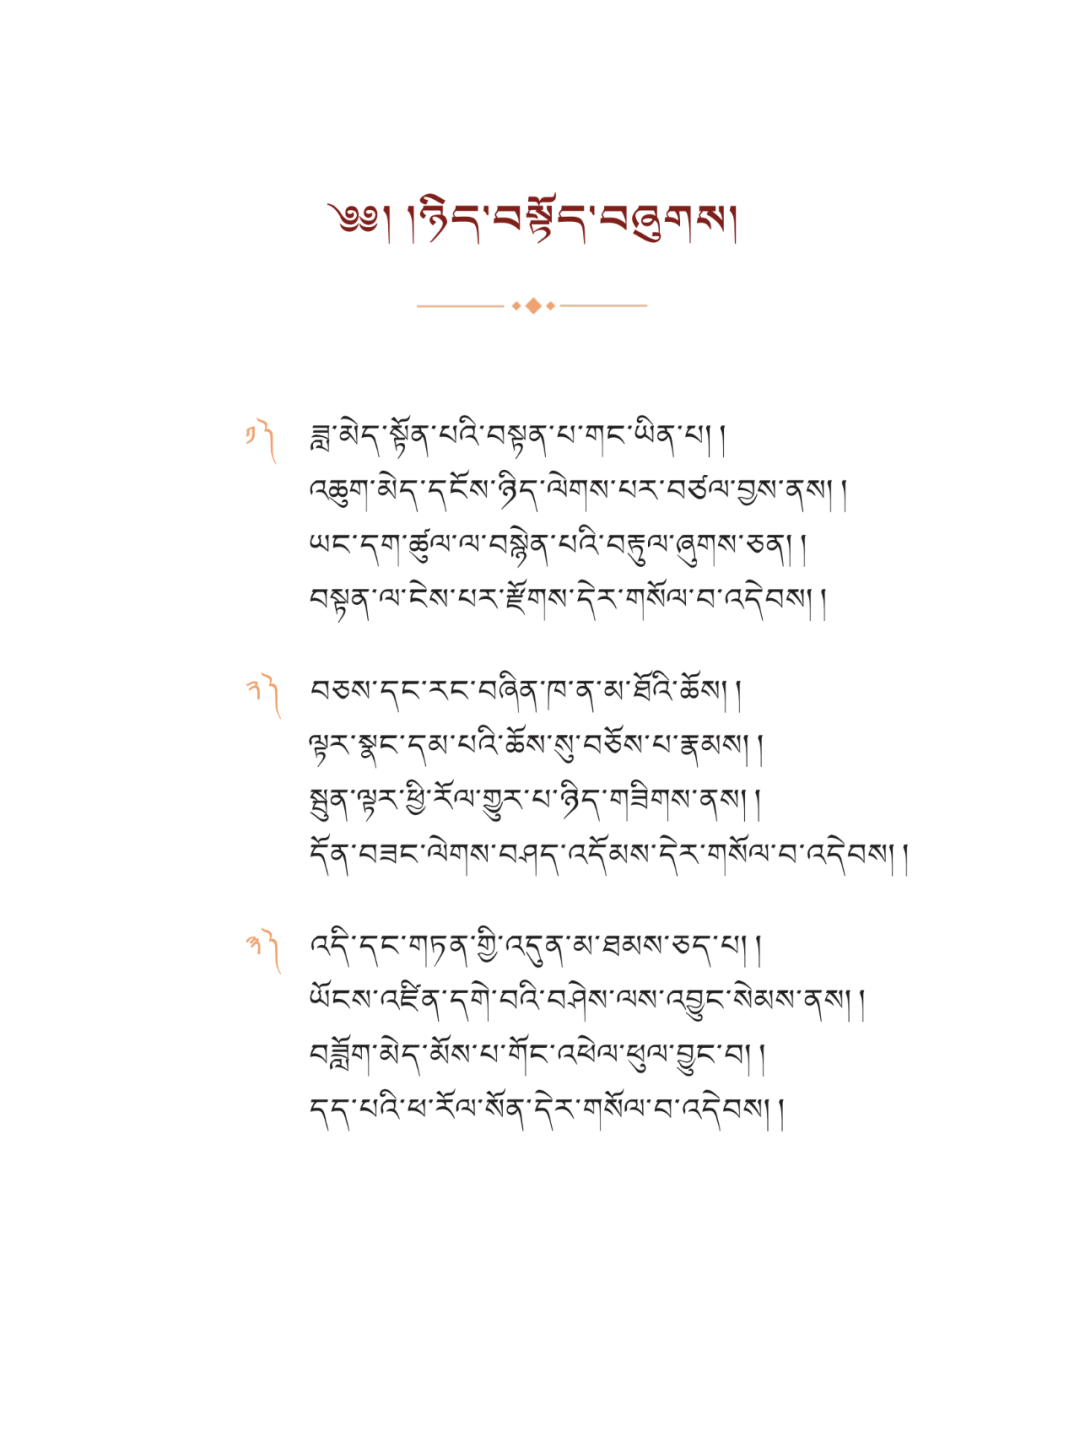 ༄༅། །ཉིད་བསྟོད་བཞུགས།
༡༽ ཟླ་མེད་སྟོན་པའི་བསྟན་པ་གང་ཡིན་པ། །
འཆུག་མེད་དངོས་ཉིད་ལེགས་པར་བཙལ་བྱས་ནས། །
ཡང་དག་ཚུལ་ལ་བསྙེན་པའི་བརྟུལ་ཞུགས་ཅན། །
བསྟན་ལ་ངེས་པར་རྫོགས་དེར་གསོལ་བ་འདེབས། །
༢༽ བཅས་དང་རང་བཞིན་ཁ་ན་མ་ཐོའི་ཆོས། །
ལྟར་སྣང་དམ་པའི་ཆོས་སུ་བཅོས་པ་རྣམས། །
སྦྲུན་ལྟར་ཕྱི་རོལ་གྱུར་པ་ཉིད་གཟིགས་ནས། །
དོན་བཟང་ལེགས་བཤད་འདོམས་དེར་གསོལ་བ་འདེབས། །
༣༽ འདི་དང་གཏན་གྱི་འདུན་མ་ཐམས་ཅད་པ། །
ཡོངས་འཛིན་དགེ་བའི་བཤེས་ལས་འབྱུང་སེམས་ནས། །
བཟློག་མེད་མོས་པ་གོང་འཕེལ་ཕུལ་བྱུང་བ། །
དད་པའི་ཕ་རོལ་སོན་དེར་གསོལ་བ་འདེབས། །